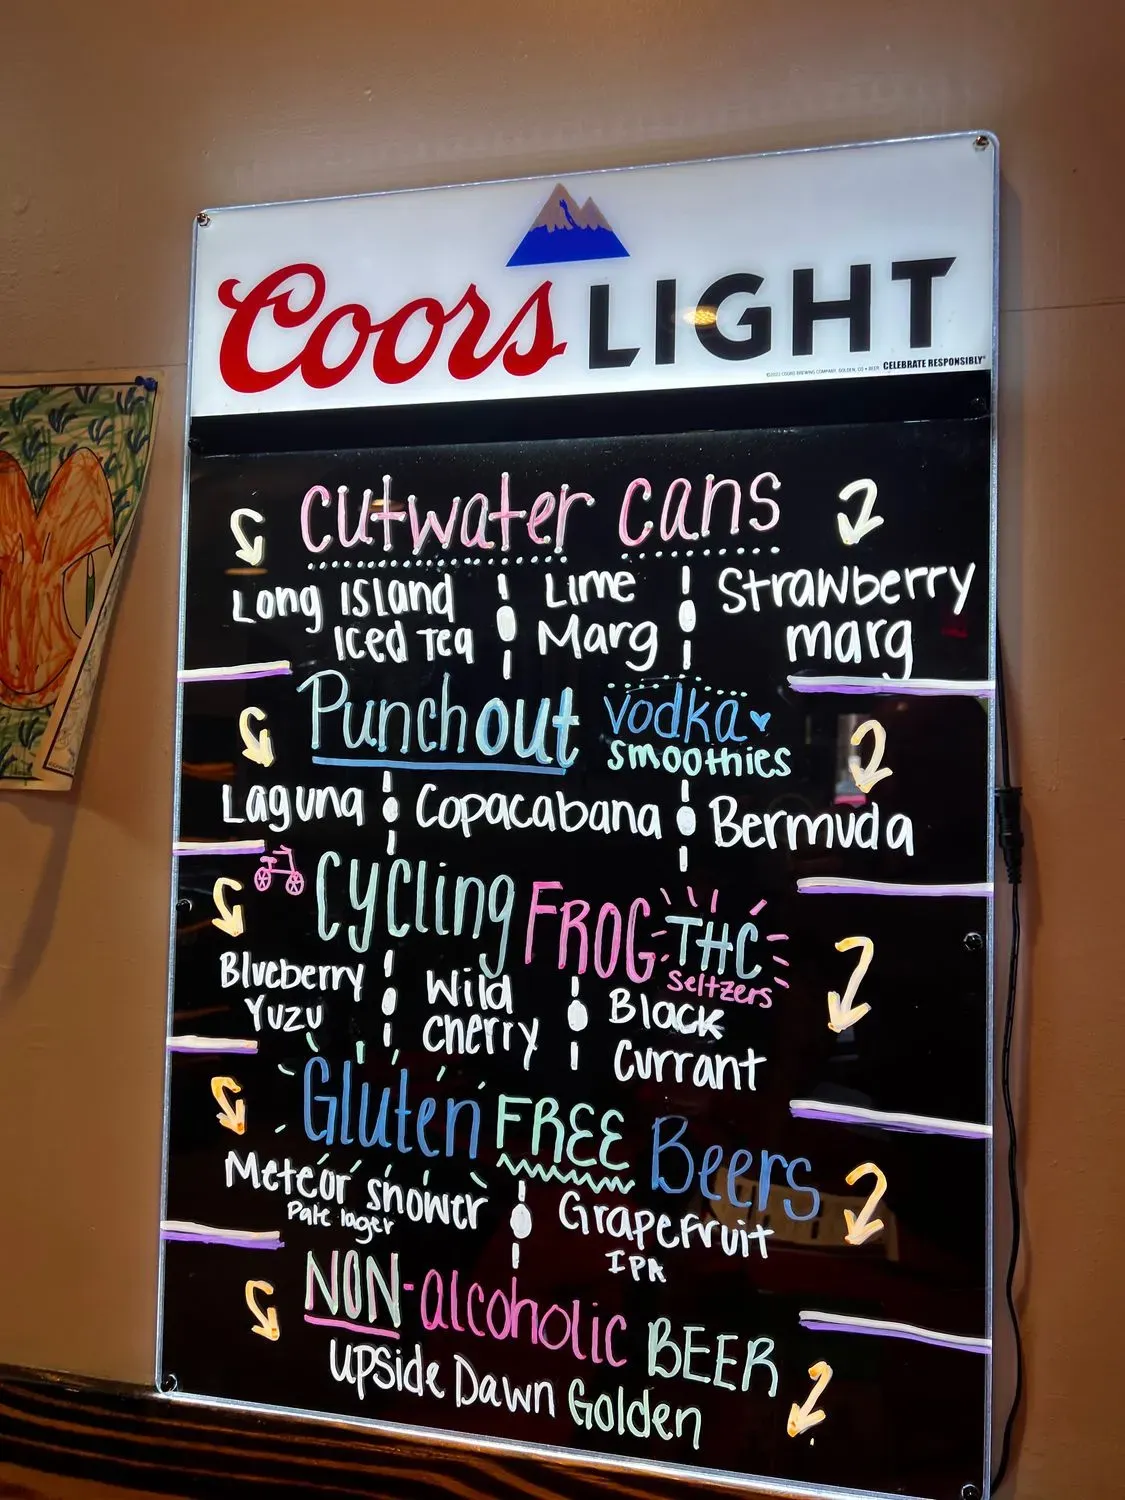 Coors LIGHT
©2022 COORS BREWING COMPANY, GOLDEN, CO • BEER CELEBRATE RESPONSIBLY®
cutwater cans
Long Island Iced Tea
Lime Marg
Strawberry marg
Punchout vodka smoothies
Laguna
Copacabana
Bermuda
Cycling FROG THC seltzers
Blueberry Yuzu
Wild cherry
Black Currant
Gluten FREE Beers
Meteor shower
Pale lager
Grapefruit
IPA
NON-alcoholic BEER
Upside Dawn Golden